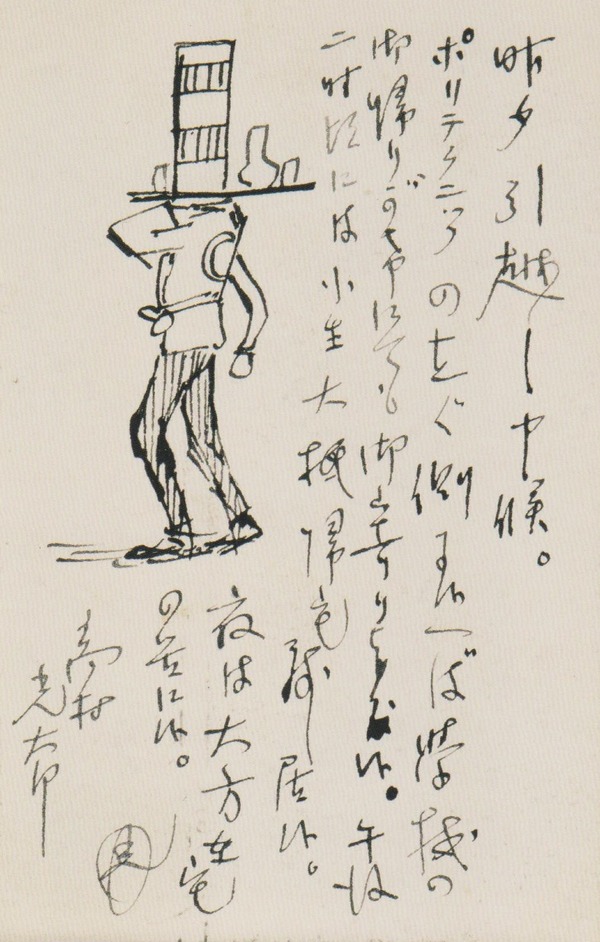 昨夕引越し申候。
ポリテクニツクのすぐ側に候へば学校の
御帰りがけにても御立寄り下され候。午後
二時頃には小生大抵帰宅致し居候。
夜は大方在宅
の筈に候。
高村
光太郎